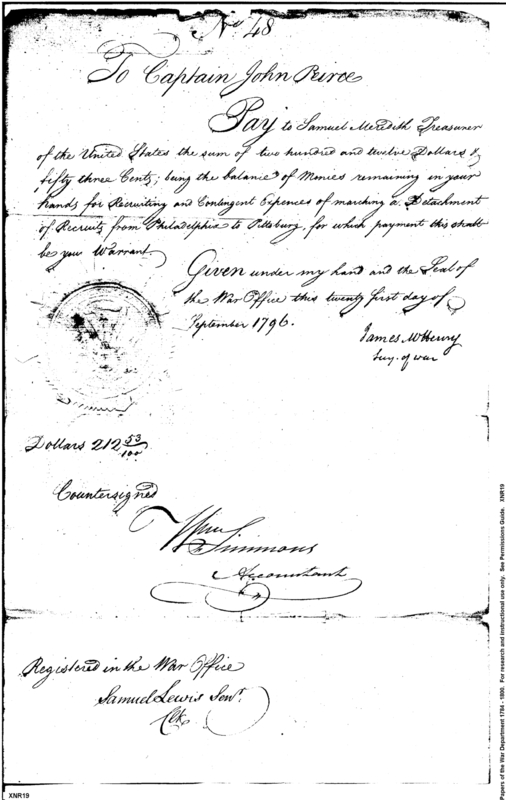 No 48
To Captain John Peirce
Pay to Samuel Meredith Treasurer
of the United States the sum of two hundred and twelve Dollars &
fifty three Cents; being the balance of Monies remaining in your
hands for Recruiting and Contingent Expences of marching a Detachment
of Recruits from Philadelphia to Pittsburg, for which payment this shall
be your Warrant.
Given under my hand and the Seal of
the War Office this twenty first day of
September 1796.
James McHenry
Secy. of war
Dollars 212 53/100
Countersigned
Wm Simmons
Accountant
Registered in the War Office
Samuel Lewis Senr.
Clk
XNR19
Papers of the War Department 1784 - 1800. For research and instructional use only. See Permissions Guide. XNR19